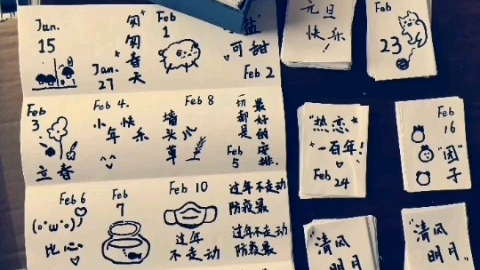 Jan.
15
Jan.
27
Feb
1
盐
可甜
Feb 2
元旦
快乐!
Feb
23
Feb
3
立春
Feb 4.
小年快乐
Feb 8
墙头草
一切都是
最好的安排
Feb
5
"热恋"
一百年!
Feb
24
Feb
16
"团"
子
Feb 6
比心
Feb
7
Feb 10
过年
不走动
过年不走动
防疫最
过年不走动
防疫最
"清风
明月
"清风
明月